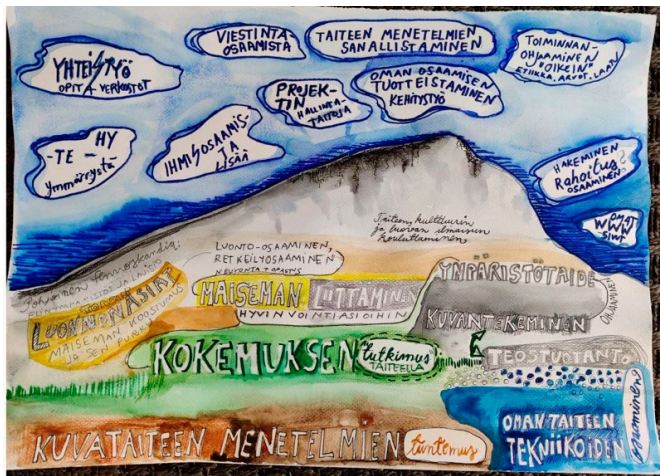 YHTEISTYÖ
OPIT + VERKOSTOT
VIESTINTÄ
OSAAMISTA
TAITEEN MENETELMIEN
SANALLISTAMINEN
TOIMINNAN-
OHJAAMINEN
"OIKEIN"
ETIIKKA, ARVOT, LAATU
PROJEK-
TIN
HALLINTA-
TAITOJA
OMAN OSAAMISEN
TUOTTEISTAMINEN
KEHITYSTYÖ
HY
-TE-
Ymmärrystä
IHMISOSAAMIS-
TA
LISÄÄ
HAKEMINEN
Rahoitus
OSAAMINEN
OMAT
WWW
SIVUT
Taiteen, kulttuurin
ja luovan ilmaisun
kouluttaminen
LUONTO-OSAAMINEN,
RETKEILYOSAAMINEN
Pohjoinen Fennoskandia:
LUONNON ASIAT
MAISEMAN KOOSTUMUS
JA SEN
MAISEMAN LIITTÄMINEN
HYVINVOINTIASIOIHIN
YMPÄRISTÖTAIDE
KUVANTEKEMINEN
OHJAAMINEN
KOKEMUKSEN tutkimus
TAITEELLA
TEOSTUOTANTO
KUVATAITEEN MENETELMIEN tuntemus
OMAN TAITEEN
TEKNIIKOIDEN
osaaminen